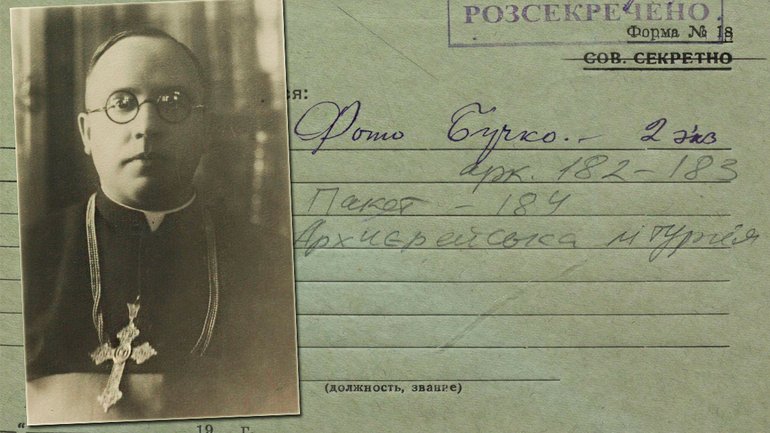 РОЗСЕКРЕЧЕНО
Форма № 18
СОВ. СЕКРЕТНО
ся:
Фото Бучко. – 2 экз
арк. 182–183
Пакет – 184
Архиєрейська літургія
(должность, звание)
" 19 г.